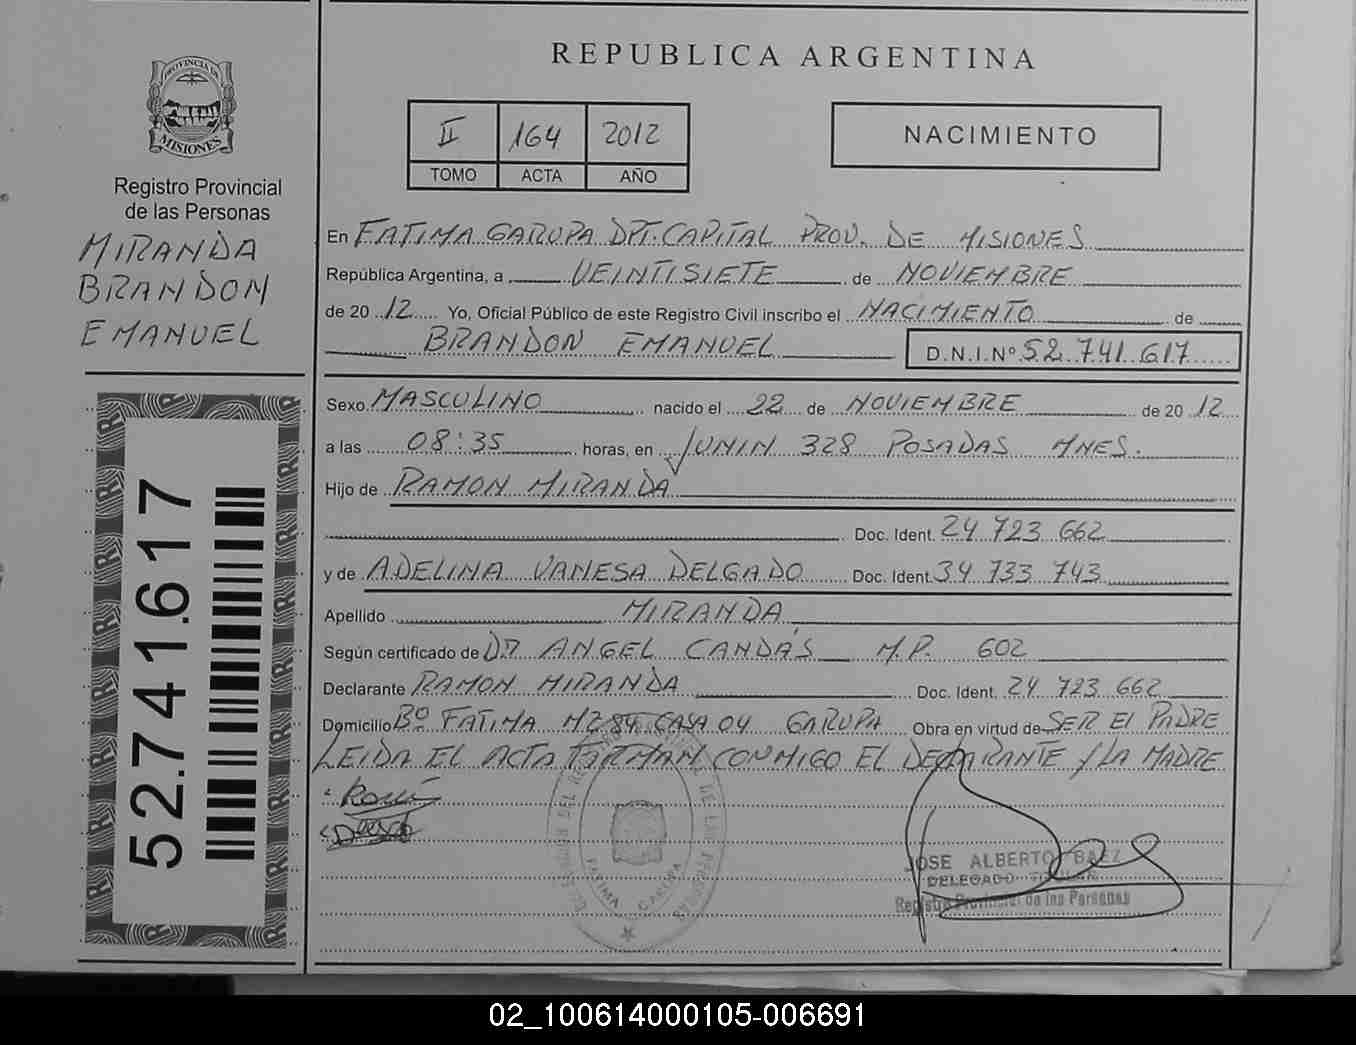 REPUBLICA ARGENTINA
PROVINCIA DE
MISIONES
Registro Provincial
de las Personas
MIRANDA
BRANDON
EMANUEL
52.741.617
II 164 2012
TOMO ACTA AÑO
NACIMIENTO
En FATIMA GARUPA DPT. CAPITAL PROV. DE MISIONES
República Argentina, a VEINTISIETE de NOVIEMBRE
de 20 12 Yo, Oficial Público de este Registro Civil inscribo el NACIMIENTO de
BRANDON EMANUEL D.N.I.Nº 52 741 617
Sexo MASCULINO nacido el 22 de NOVIEMBRE de 20 12
a las 08:35 horas, en JUNIN 328 POSADAS MNES.
Hijo de RAMON MIRANDA
Doc. Ident. 24 723 662
y de ADELINA VANESA DELGADO Doc. Ident. 34 733 743
Apellido MIRANDA
Según certificado de DR ANGEL CANDÁS M.P. 602
Declarante RAMON MIRANDA Doc. Ident. 24 723 662
Domicilio Bº FATIMA MZ 84 CASA 04 GARUPA Obra en virtud de SER El PADRE
LEIDA EL ACTA FIRMAN CONMIGO EL DECLARANTE y LA MADRE
FATIMA - GARUPA
JOSE ALBERTO BAEZ
DELEGADO
Registro Provincial de las Personas
02_100614000105-006691